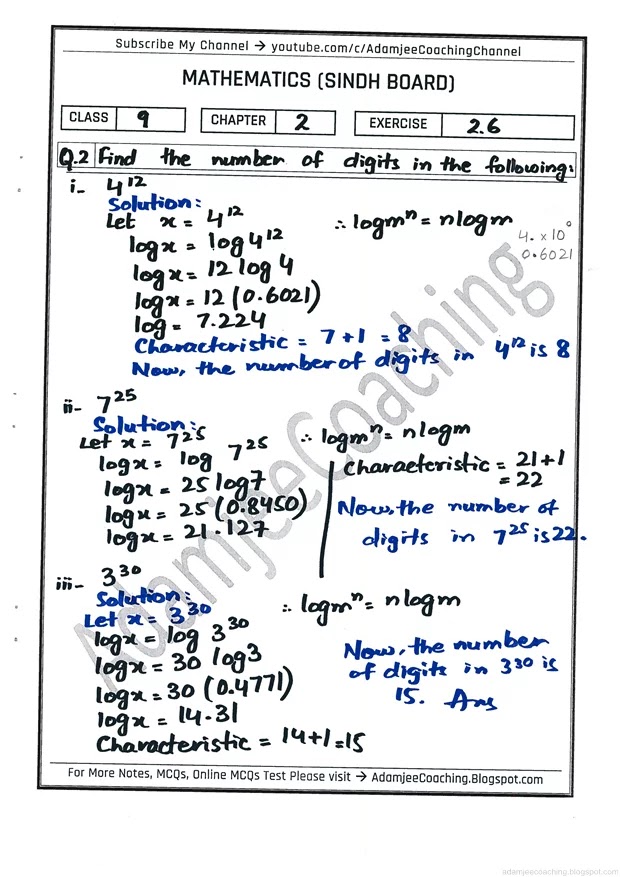 Subscribe My Channel → youtube.com/c/AdamjeeCoachingChannel
MATHEMATICS (SINDH BOARD)
CLASS 9 CHAPTER 2 EXERCISE 2.6
Q.2 Find the number of digits in the following:
i- 4¹²
Solution:
Let x = 4¹² ∴ logmⁿ = nlogm
4. × 10⁰
0.6021
logx = log4¹²
logx = 12 log 4
logx = 12 (0.6021)
log = 7.224
Characteristic = 7 + 1 = 8
Now, the number of digits in 4¹² is 8
ii- 7²⁵
Solution:
Let x = 7²⁵ ∴ logmⁿ = nlogm
logx = log 7²⁵
logx = 25 log7
logx = 25 (0.8450)
logx = 21.127
Characteristic = 21+1
= 22
Now, the number of
digits in 7²⁵ is 22.
iii- 3³⁰
Solution:
Let x = 3³⁰ ∴ logmⁿ = nlogm
logx = log 3³⁰
logx = 30 log3
logx = 30 (0.4771)
logx = 14.31
Characteristic = 14+1=15
Now, the number
of digits in 3³⁰ is
15. Ans
AdamjeeCoaching
For More Notes, MCQs, Online MCQs Test Please visit → AdamjeeCoaching.Blogspot.com
adamjeecoaching.blogspot.com